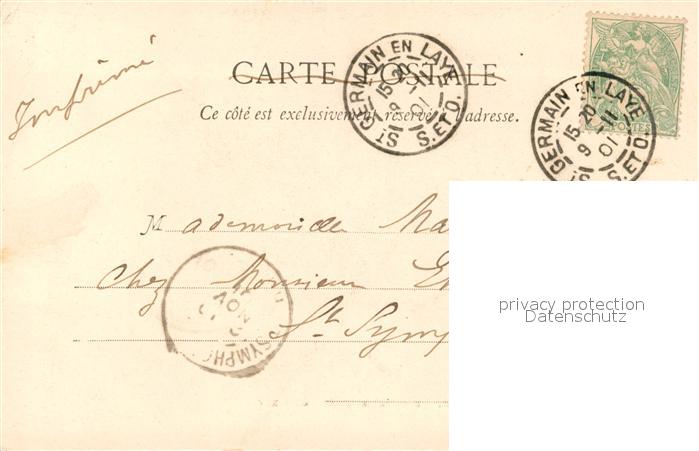 Imprimé
CARTE POSTALE
Ce côté est exclusivement réservé à l'adresse.
ST GERMAIN EN LAYE
15 20
9 -11
01
S. ET O.
ST GERMAIN EN LAYE
15 20
9 -11
01
S. ET O.
POSTES
Mademoiselle Ma
Chez Monsieur
St Symp
NOV
SYMPH
privacy protection
Datenschutz